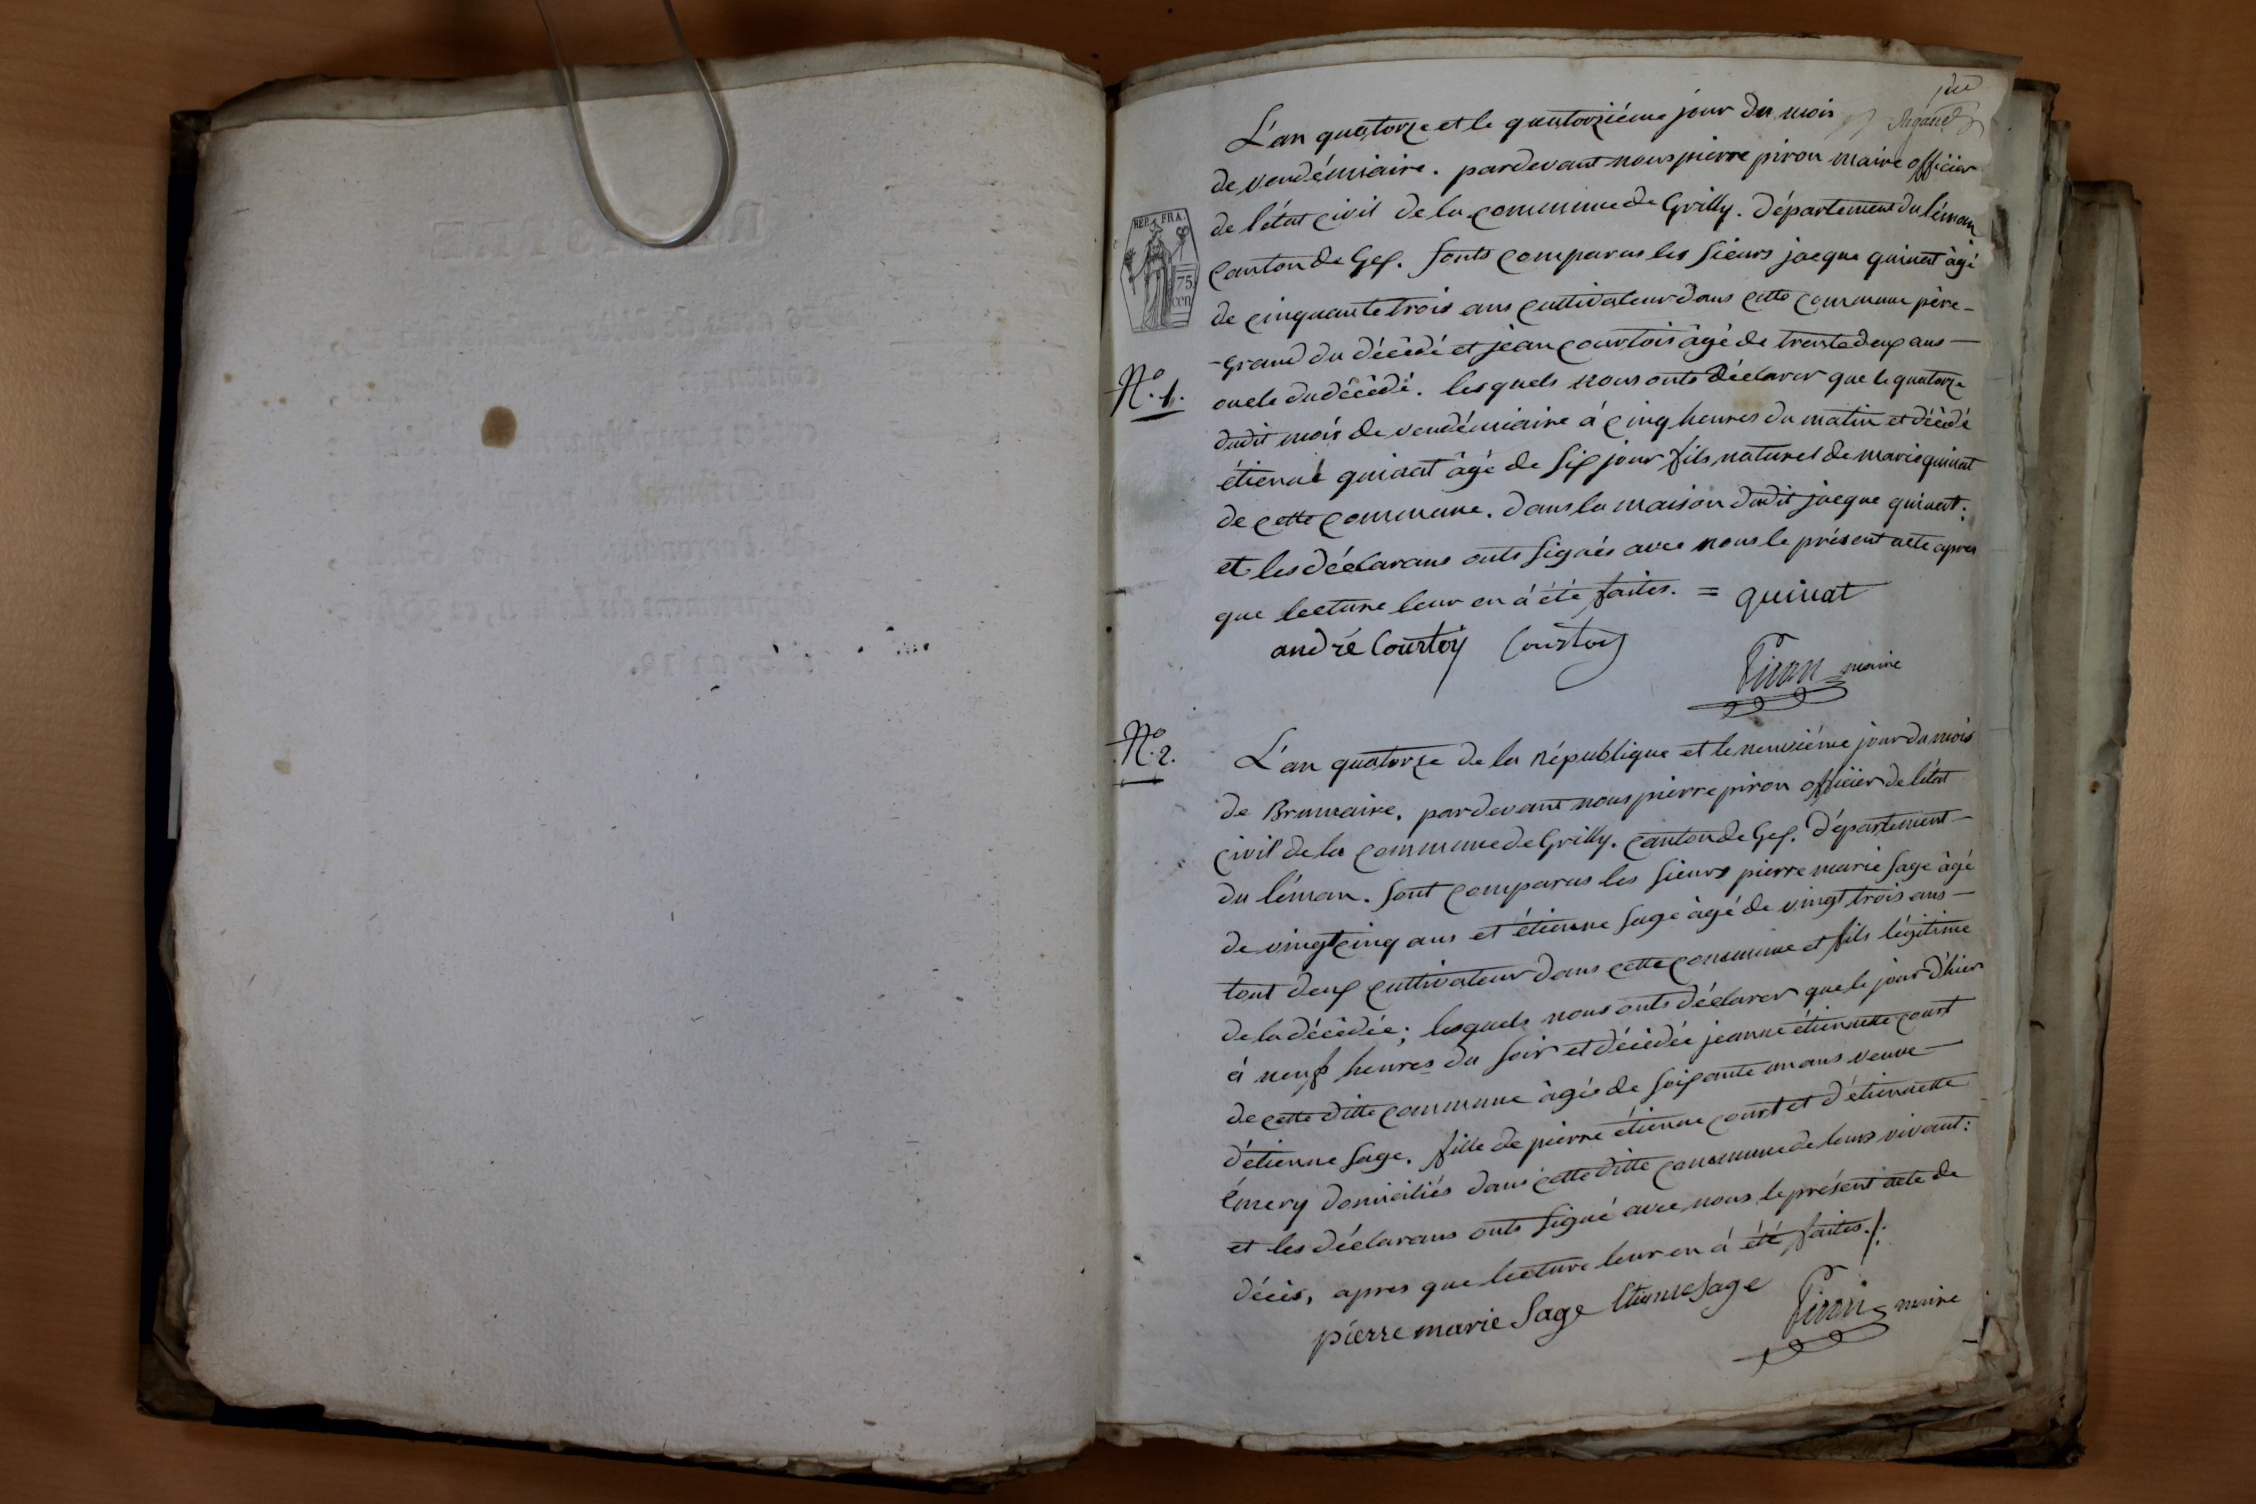 L'an quatorze et le quatorziéme jour du mois
de vendémiaire. pardevant nous pierre piron maire officier
de l'état civil de la commune de Grilly. département du léman
REP. FRA.
75
cen
canton de Gex. sonts comparus les sieurs jacque quinat âgé
de cinquante trois ans cultivateur dans cette commune père-
-grand du décédé et jean courtois âgé de trente deux ans —
Nº. 1.
oncle du décédé. lesquels nous onts déclarer que le quatorze
dudit mois de vendémiaire à cinq heures du matin et décédé
étienne quinat âgé de six jour fils naturel de marie quinat
de cette commune. dans la maison dudit jacque quinat.
et les déclarans onts signés avec nous le présent acte apres
que lecture leur en à été faites. = quinat
andré Courtoy Courtoy
Piron maire
Nº. 2.
L'an quatorze de la république et le neuviéme jour du mois
de Brumaire. pardevant nous pierre piron officier de l'état
civil de la commune de Grilly. canton de Gex. département —
du léman. sont comparus les sieurs pierre marie sage âgé
de vingt cinq ans et étienne sage âgé de vingt trois ans —
tout deux cultivateur dans cette commune et fils légitime
de la décédée; lesquels nous onts déclarer que le jour d'hier
à neuf heures du soir et décédée jeanne étiennette court
de cette ditte commune âgée de soixante un ans veuve —
d'étienne sage. fille de pierre étienne court et d'étiennette
émery domiciliés dans cette ditte commune de leurs vivant:
et les déclarans onts signé avec nous le présent acte de
décès, apres que lecture leur en à été faites./.
pierre marie Sage Etienne Sage Piron maire